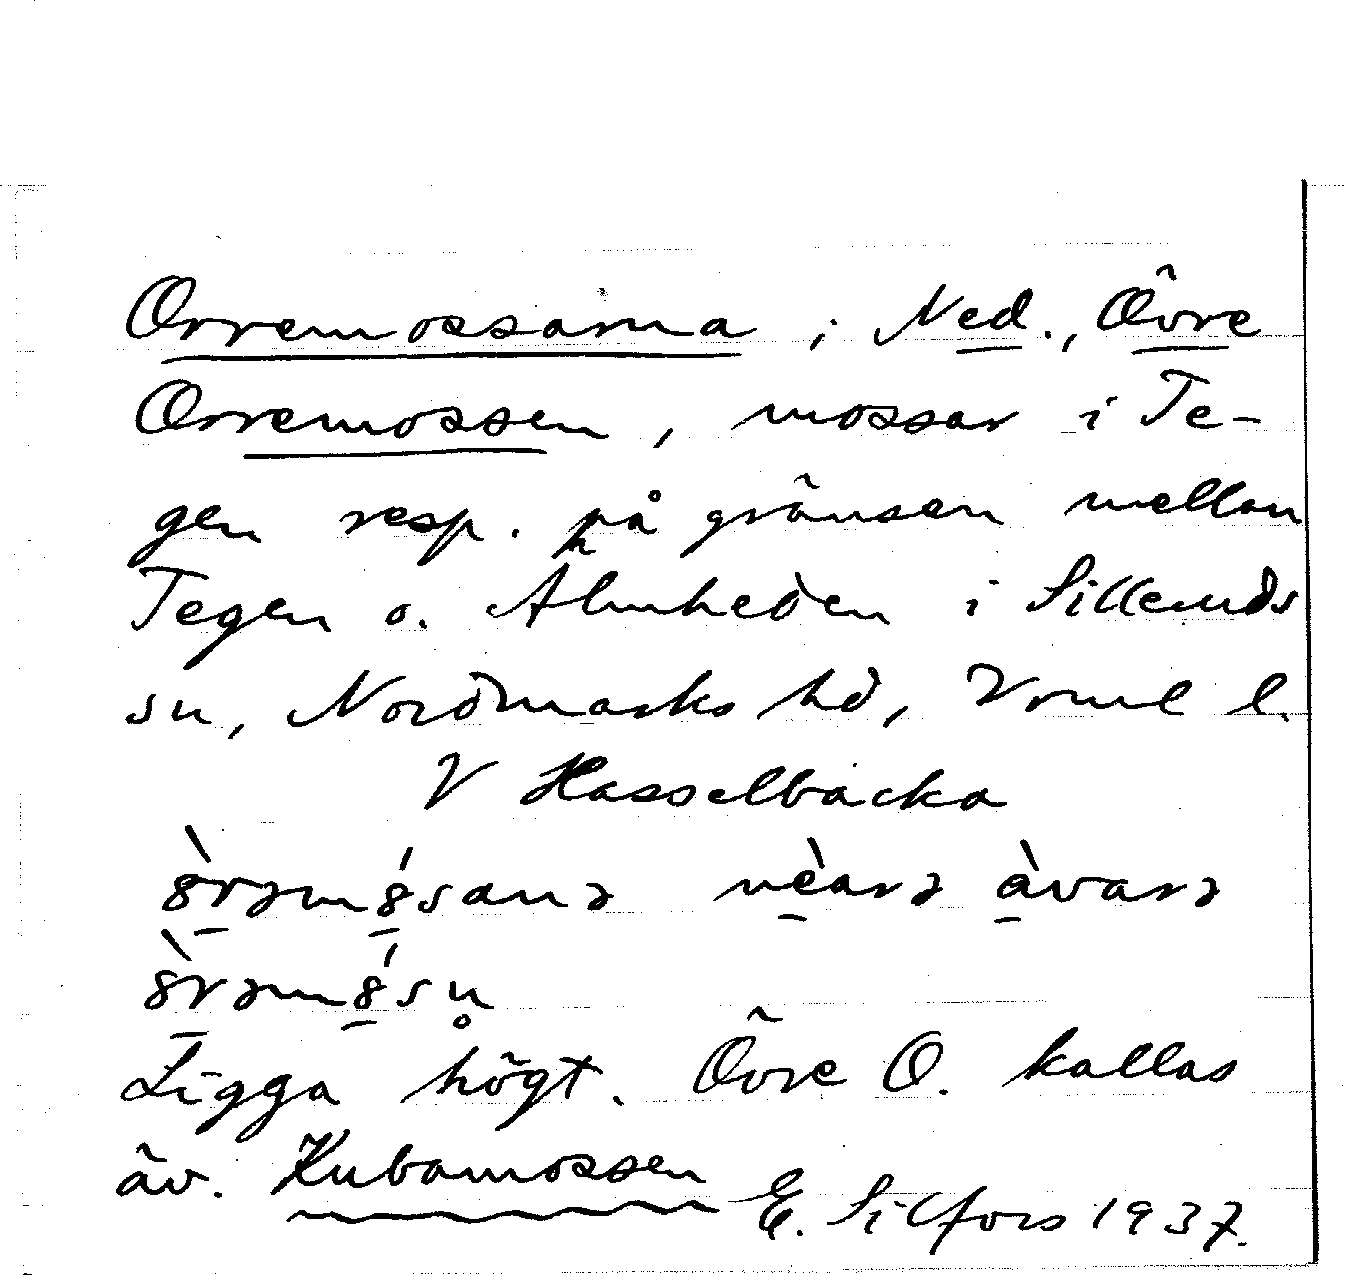 Orremossarna ; Ned., Övre
Orremossen, mossar i Te-
gen resp. på gränsen mellan
Tegen o. Älmheden i Sillerud
sn, Nordmarks hd, Vrml l.
V Hasselbacka
Ligga högt. Övre O. kallas
äv. Kubamossen
E. Silfors 1937.